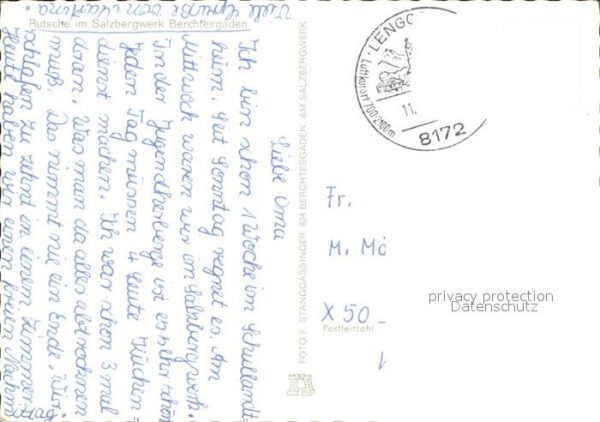 Rutsche im Salzbergwerk Berchtesgaden
Liebe Omu
Ich bin schon 1 Woche im Schullandt-
heim. Seit Sonntag regnet es. Am
Mittwoch waren wir im Salzbergwerk.
In der Jugendherberge ist es sehr schön
Jeden Tag müssen 4 Leute Küchen-
dienst machen. Ich war schon 3 mal
dran. Was man da alles abtrocknen
muß. Das nimmt nie ein Ende. Wir
schlafen zu zehnt in einem Zimmer.
Heut haben wir einen
Viele Grüße von
FOTO F. STANGGASSINGER 824 BERCHTESGADEN AM SALZBERGWERK
LENGG
Luftkurort 700-2100m
11.
8172
Fr.
M. Mö
X 50
Postleitzahl
privacy protection
Datenschutz